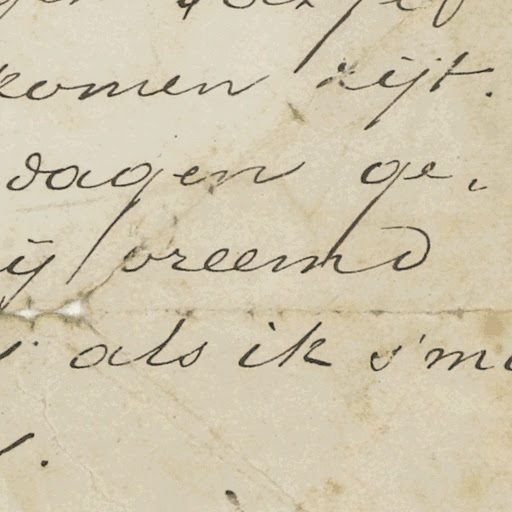 komen zijt.
dagen ge-
ij vreemd
als ik s'mo